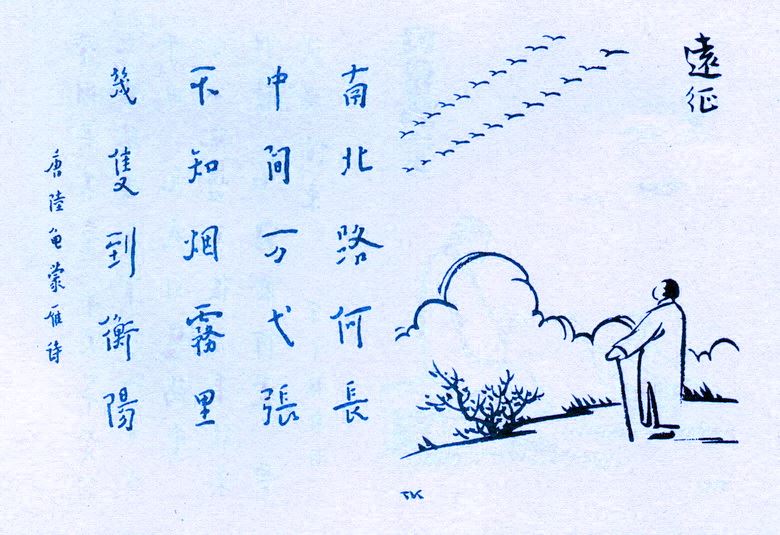 遠征
南北路何長
中間万弋張
不知烟霧里
幾隻到衡陽
唐陸龟蒙雁诗
TK